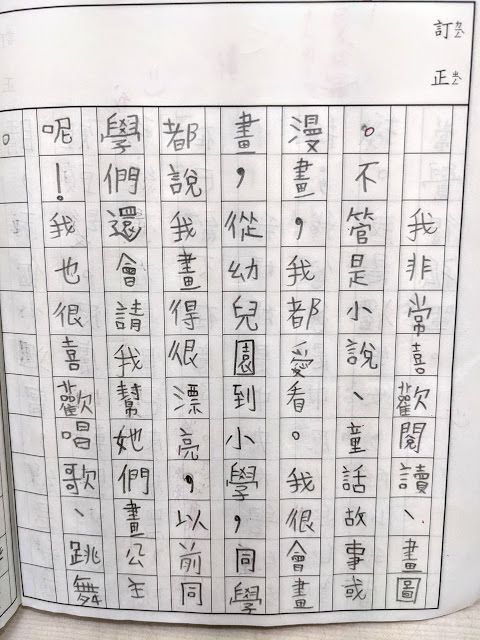 訂正
我非常喜歡閱讀、畫圖
。不管是小說、童話故事或
漫畫，我都愛看。我很會畫
畫，從幼兒園到小學，同學
都說我畫得很漂亮，以前同
學們還會請我幫她們畫公主
呢！我也很喜歡唱歌、跳舞
。